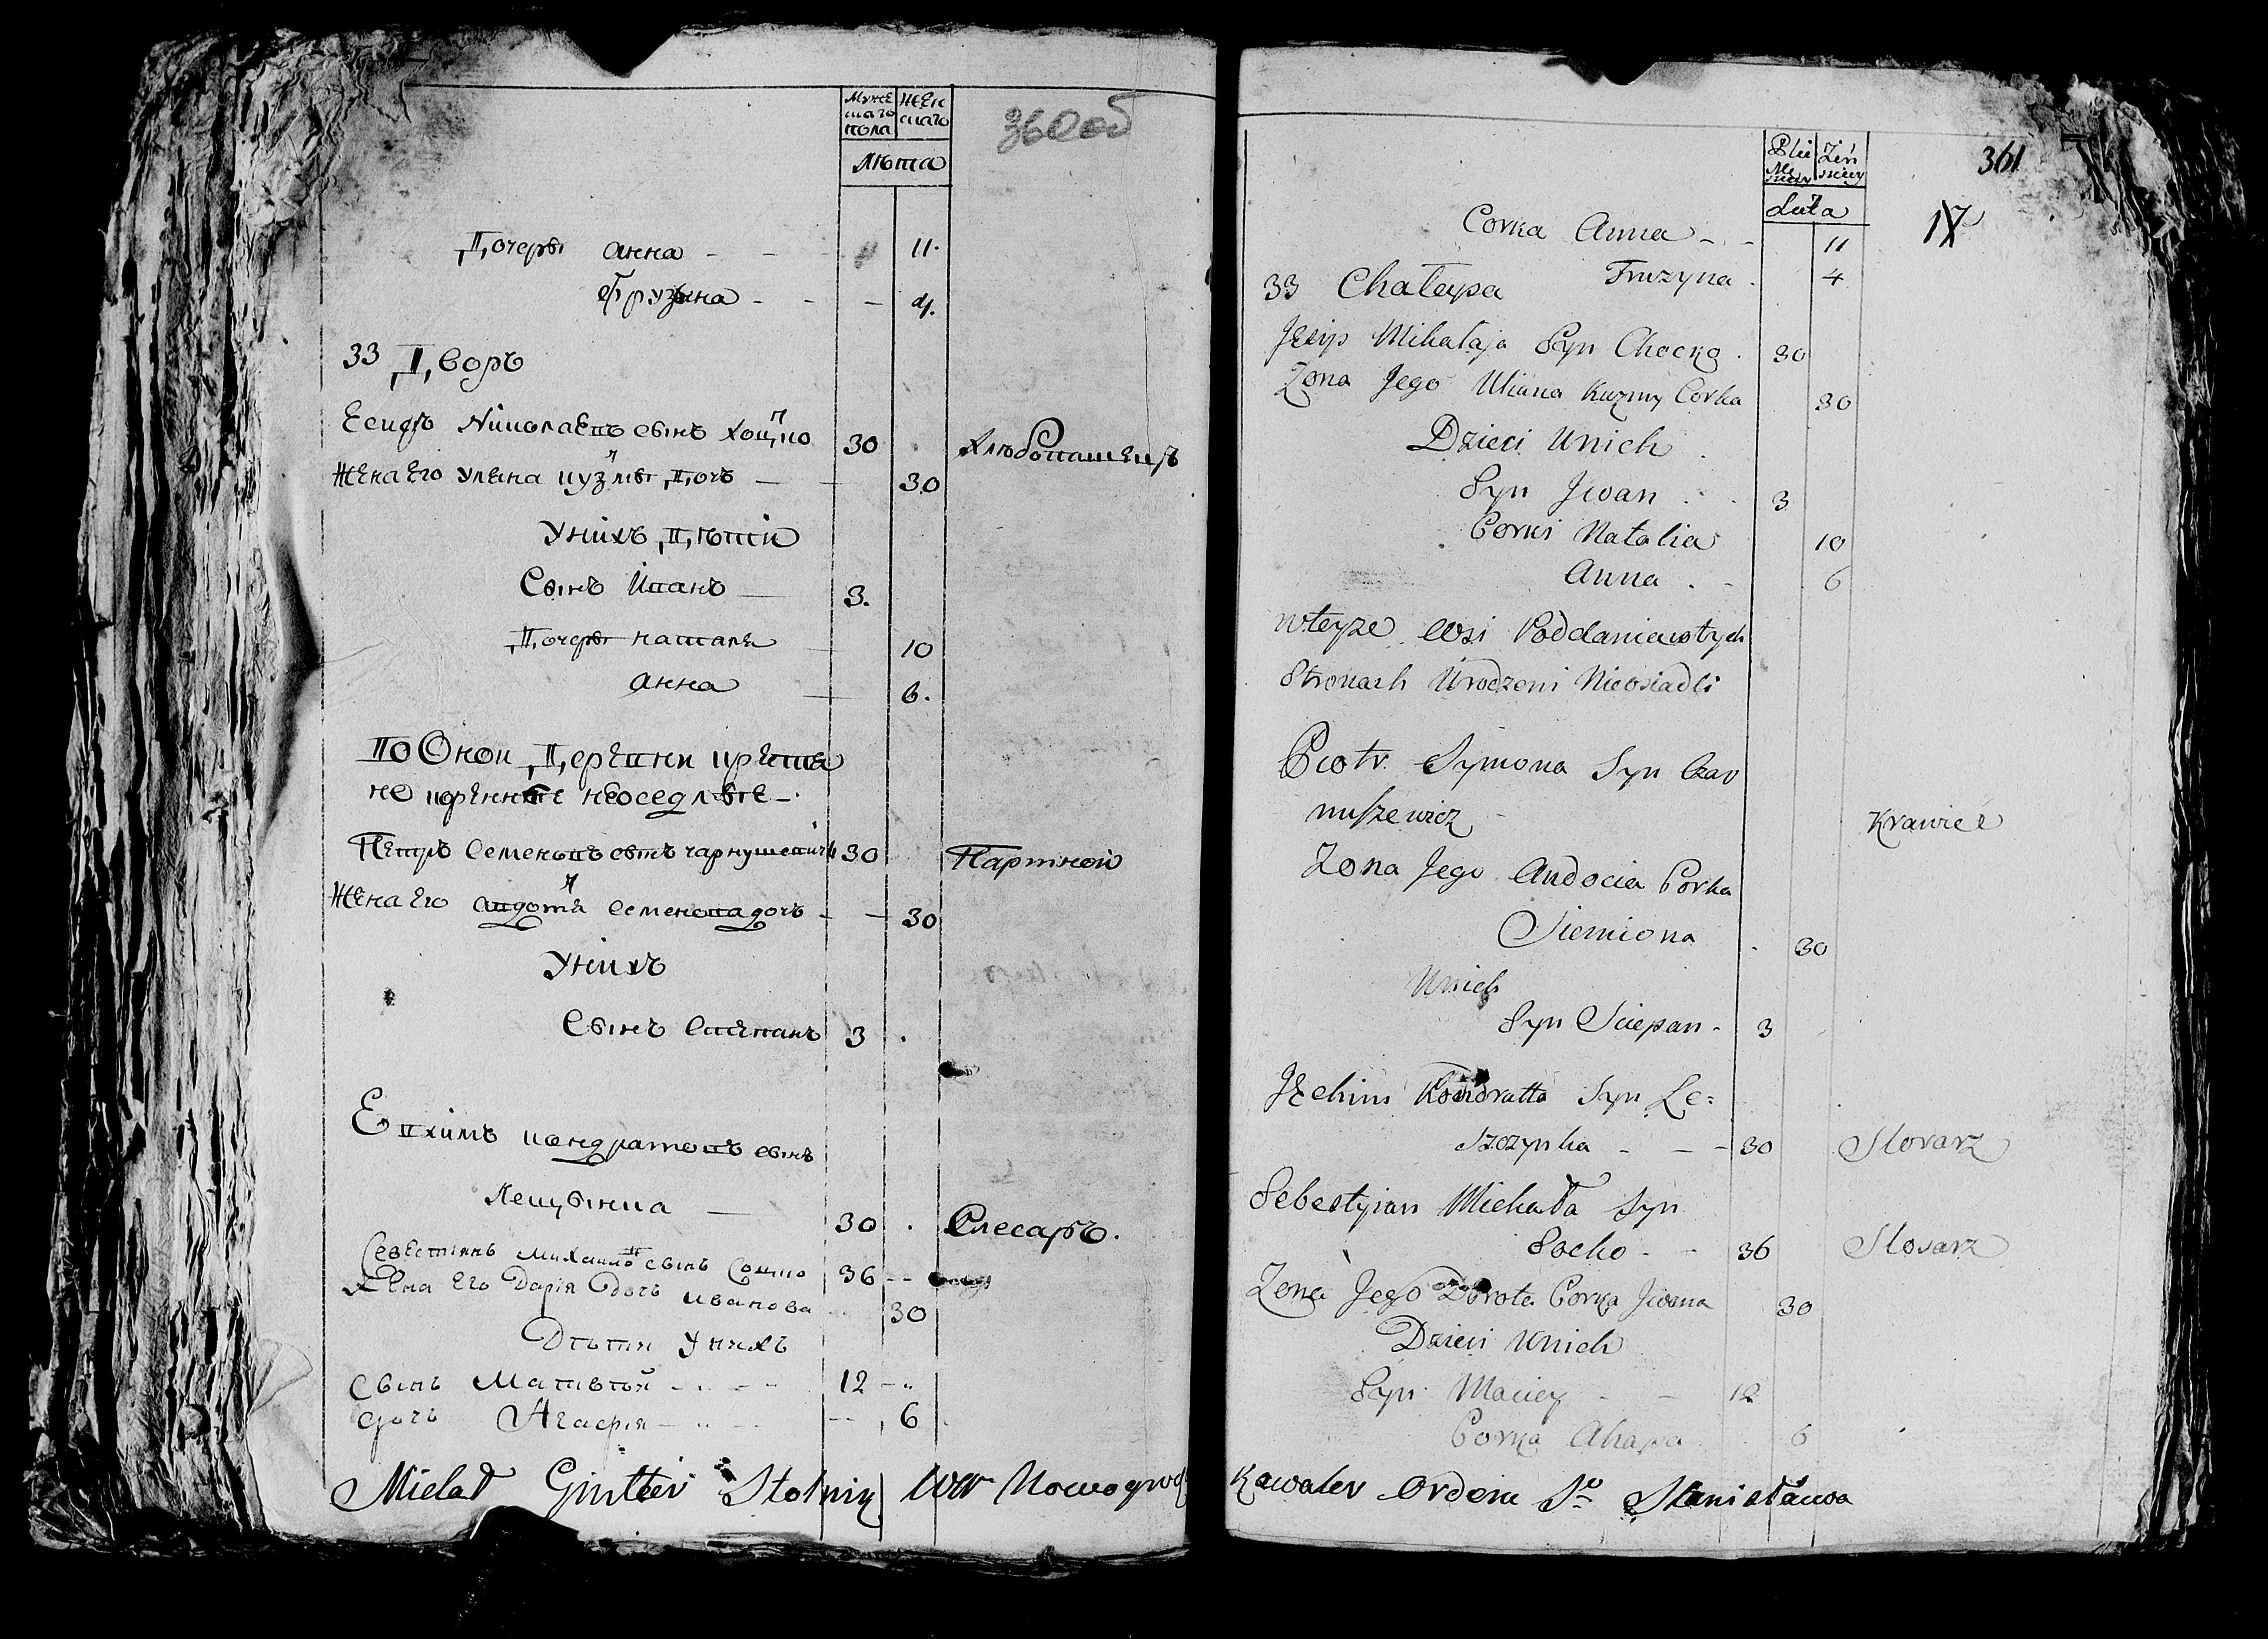 Муже
скаго
пола
жен
скаго
360об
лѣта
Дочери Анна - - 11.
Фрузына - - - 4.
33 Дворъ
Есипъ Николаевъ сынъ Хоцко 30 Хлѣбопашецъ
Жена Его Уляна Кузмы Дочь — 30
Унихъ Дѣти
Сынъ Иванъ — 3.
Дочери Наталя 10
Анна — 6.
По Оной Деревни крестя
не крѣпные неоседлые -.
Петръ Семеновъ сынъ Чарнушевичъ 30 Партной
Жена Его Авдотя Семенова дочь - — 30
Унихъ
Сынъ Степанъ 3 .
Евхимъ Кондратовъ сынъ
Лещынка — 30 . Слесаръ.
Севестиянъ Михаиловъ сынъ Соцко 36 --
Жена Его Дарія дочь Иванова 30
Дѣти Унихъ
Сынъ Мативѣй - . - - 12 -..
дочь Агафия - .. - -- 6
Michał Gintter Stolnik Wdw Nowogrod
361
Płci
Mę
skiey
Żeń
skiey
Lata
IX
Corka Anna - - 11
Fruzyna . 4
33 Chałupa
Jesip Mikałaja Syn Chocko . 30
Zona Jego Uliana Kuzmy Corka 30
Dzieci Unich
Syn Jwan . . 3
Corki Natalia 10
Anna . - 6
wteyze wsi Poddani ewtych
Stronach Urodzeni Nieosiadli
Piotr Symona Syn Czar
nuszewicz Krawiec
Zona Jego Audocia Corka
Siemiona . 30
Unich
Syn Sciepan - 3
Jechim Kondratta Syn Le=
szczynka - - - 30 Slosarz
Sebestyian Michała Syn
Socko - - 36 Slosarz
Zona Jego Dorota Corka Jwana 30
Dzieci Unich
Syn Maciey - - 12
Corka Ahapa 6
Kawaler Orderu So Stanisława